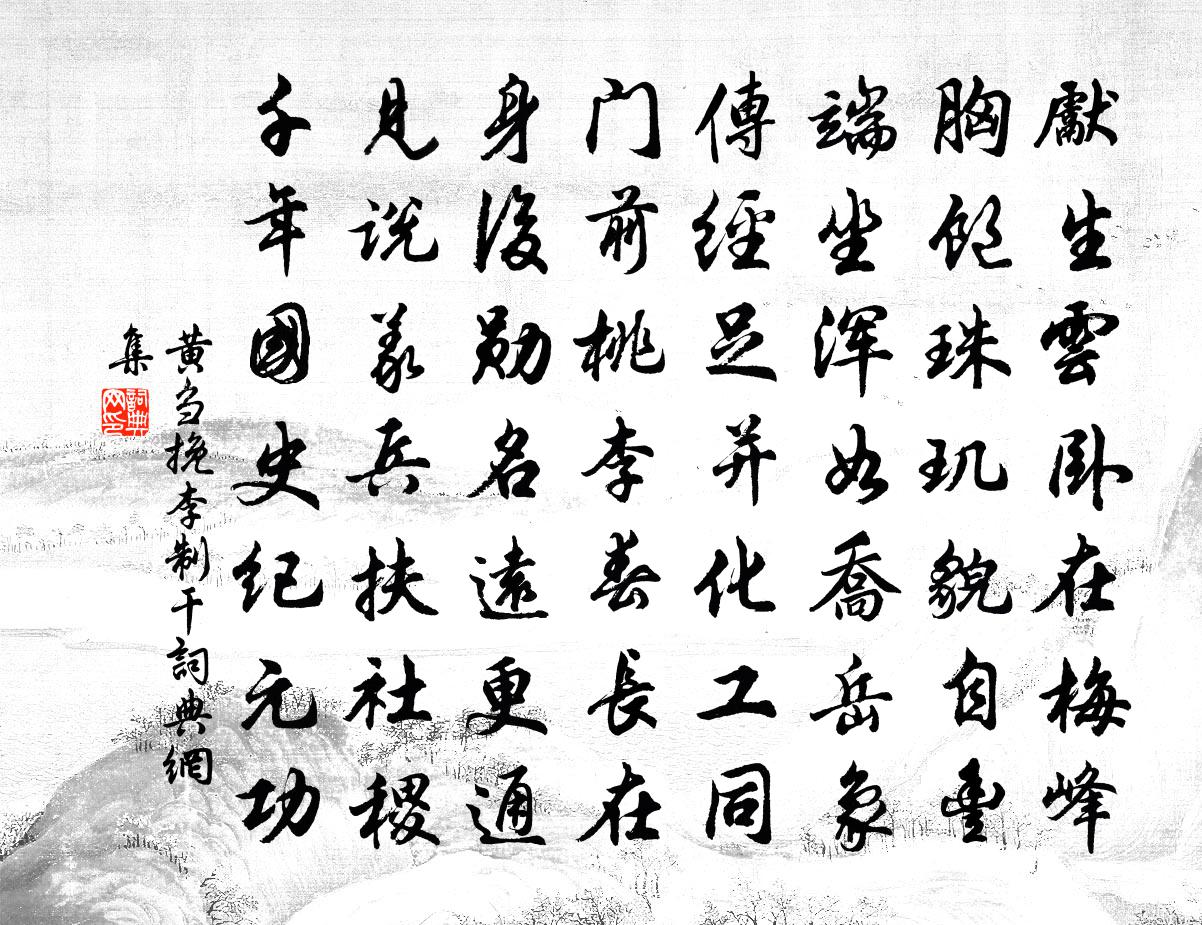 獻生雲卧在梅峰
胸飽珠玑貌自豐
端坐渾如喬岳象
傳經足并化工同
门前桃李春長在
身後勋名遠更通
見説義兵扶社稷
千年國史纪元功
黄刍挽李制干詞典網
集
詞典网印